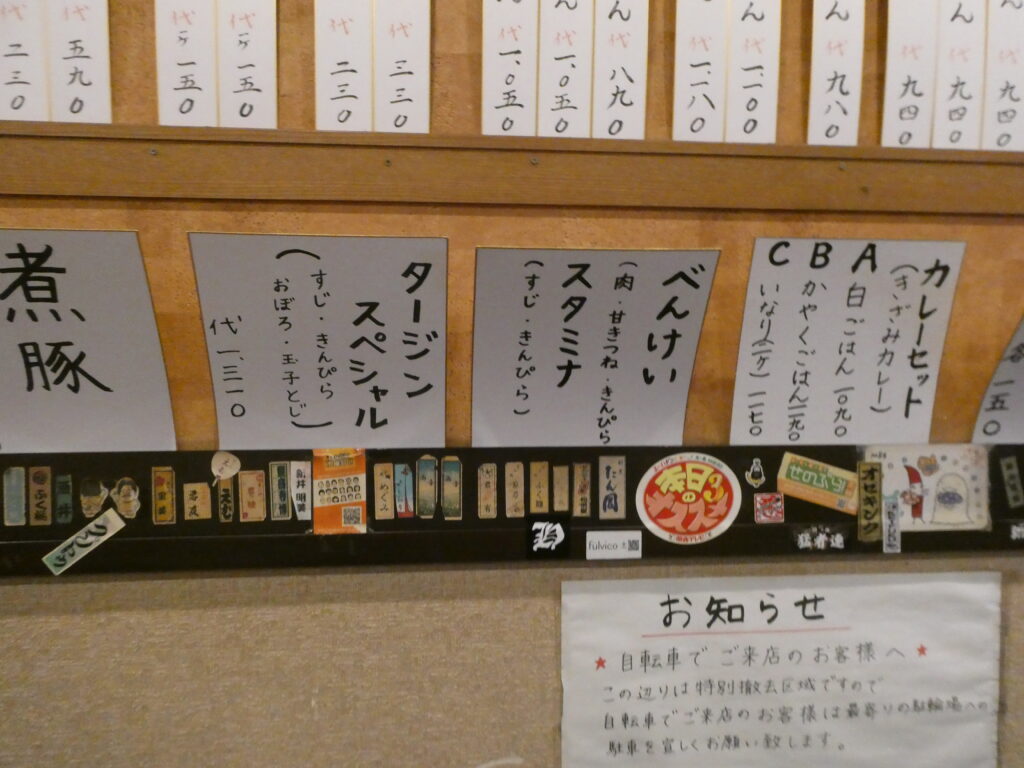 ん 代 九四〇
ん 代 九四〇
ん 代 九四〇
ん 代 九八〇
ん 代 一、一〇〇
代 一、一八〇
ん 代 八九〇
ん 代 一、〇五〇
ん 代 一、〇五〇
代 三三〇
代 二三〇
代 一ヶ 一五〇
代 一ヶ 一五〇
代 五九〇
二三〇
一五〇
カレーセット
(きざみカレー)
A 白ごはん 一〇九〇
B かやくごはん 一一九〇
C いなり(一ヶ) 一一七〇
べんけい
(肉・甘きつね・きんぴら
スタミナ
(すじ・きんぴら)
タージン
スペシャル
(すじ・きんぴら
おぼろ・玉子とじ)
代 一、三一〇
煮豚
めぐみ
本日の
オススメ
関西テレビ
fulvico
猛者達
オセキング
お知らせ
★ 自転車でご来店のお客様へ ★
この辺りは特別撤去区域ですので
自転車でご来店のお客様は最寄りの駐輪場への
駐車を宜しくお願い致します。